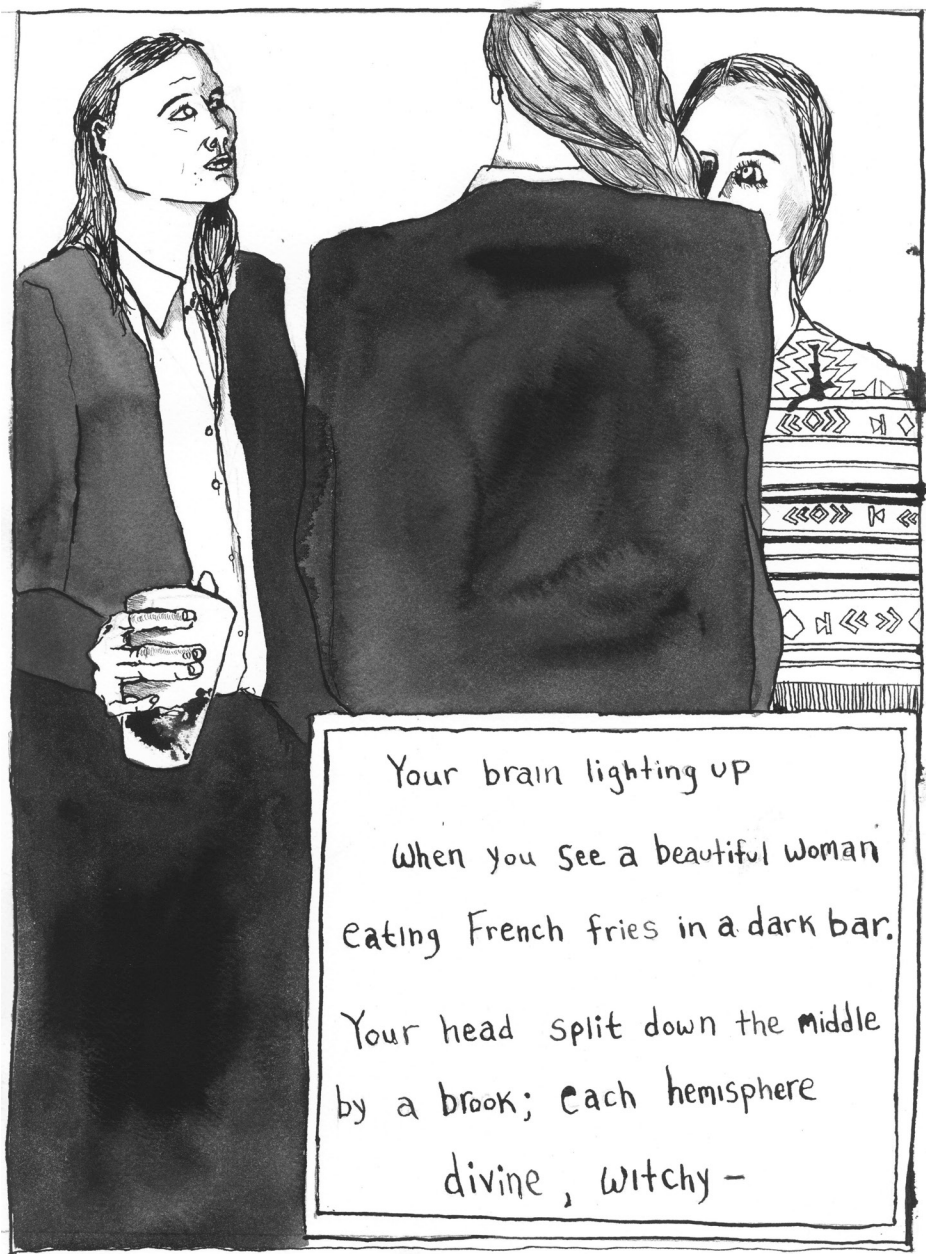 Your brain lighting up
When you see a beautiful woman
eating French fries in a dark bar.
Your head split down the middle
by a brook; each hemisphere
divine, witchy –